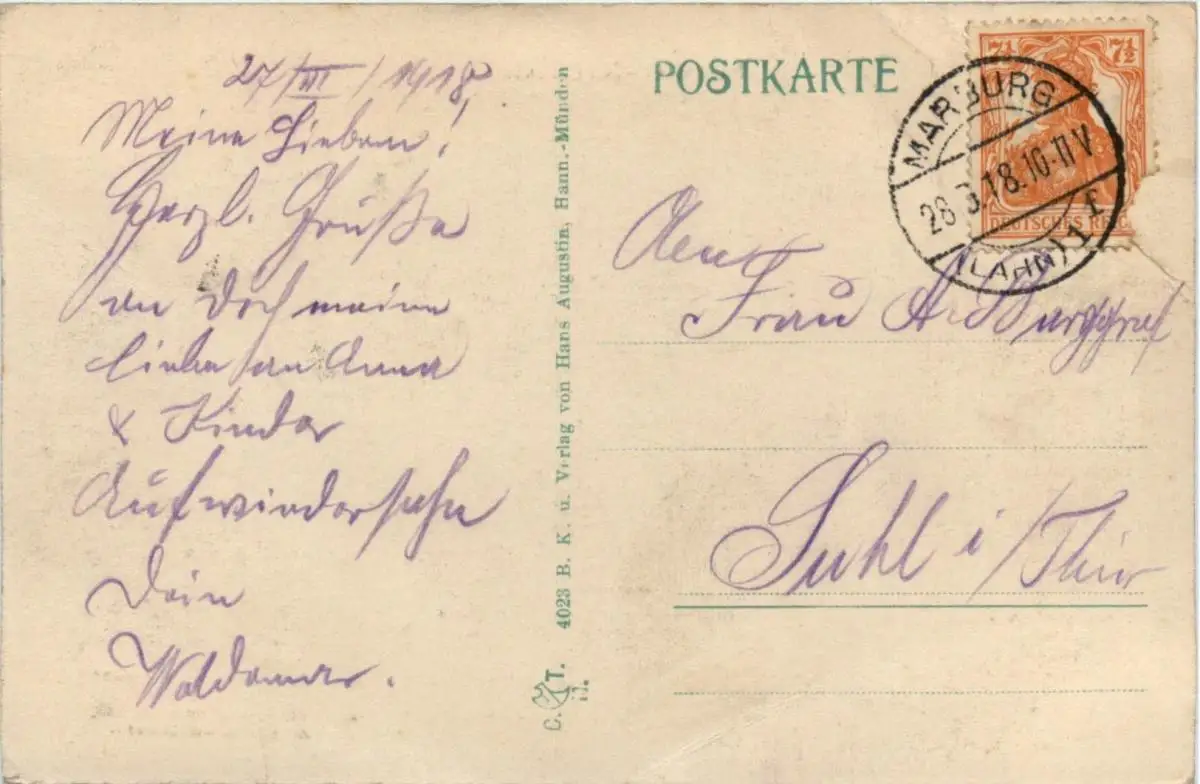 27/III/1918
Meine Lieben!
Herzl. Grüße
an Dich meine
Liebe an Anna
& Kinder
Aufwiedersehn
Dein
Waldemar.
4023 B. K. u. Verlag von Hans Augustin, Hann.-Münden
C. T.
POSTKARTE
7½ 7½
DEUTSCHES REIC
MARBURG
28.3.18.10-11V
(LAHN) 1 f
An
Frau A. Burggraf
Suhl i/Thür